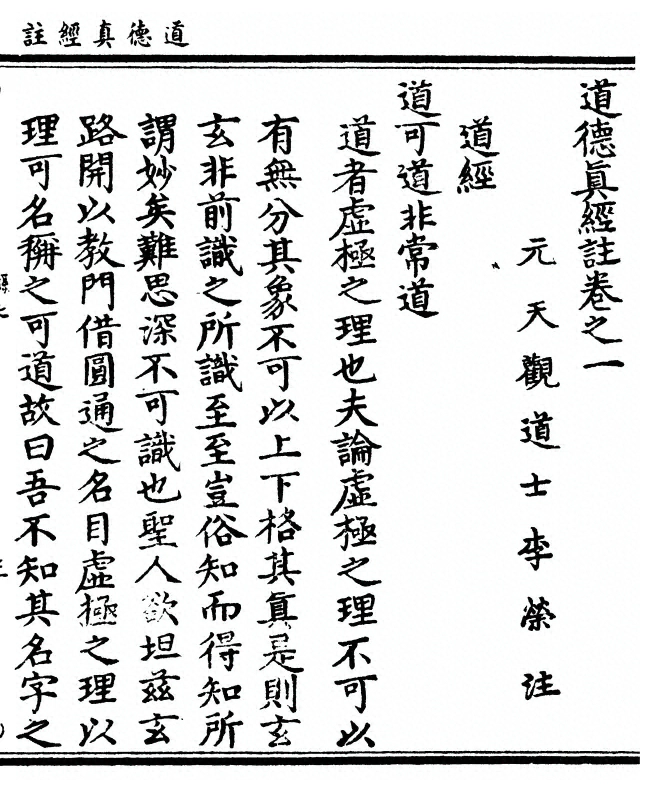 道德真經註
道德眞經註卷之一
元天觀道士李榮注
道經
道可道非常道
道者虛極之理也夫論虛極之理不可以
有無分其象不可以上下格其眞是則玄
玄非前識之所識至至豈俗知而得知所
謂妙矣難思深不可識也聖人欲坦茲玄
路開以教門借圓通之名目虛極之理以
理可名稱之可道故曰吾不知其名字之